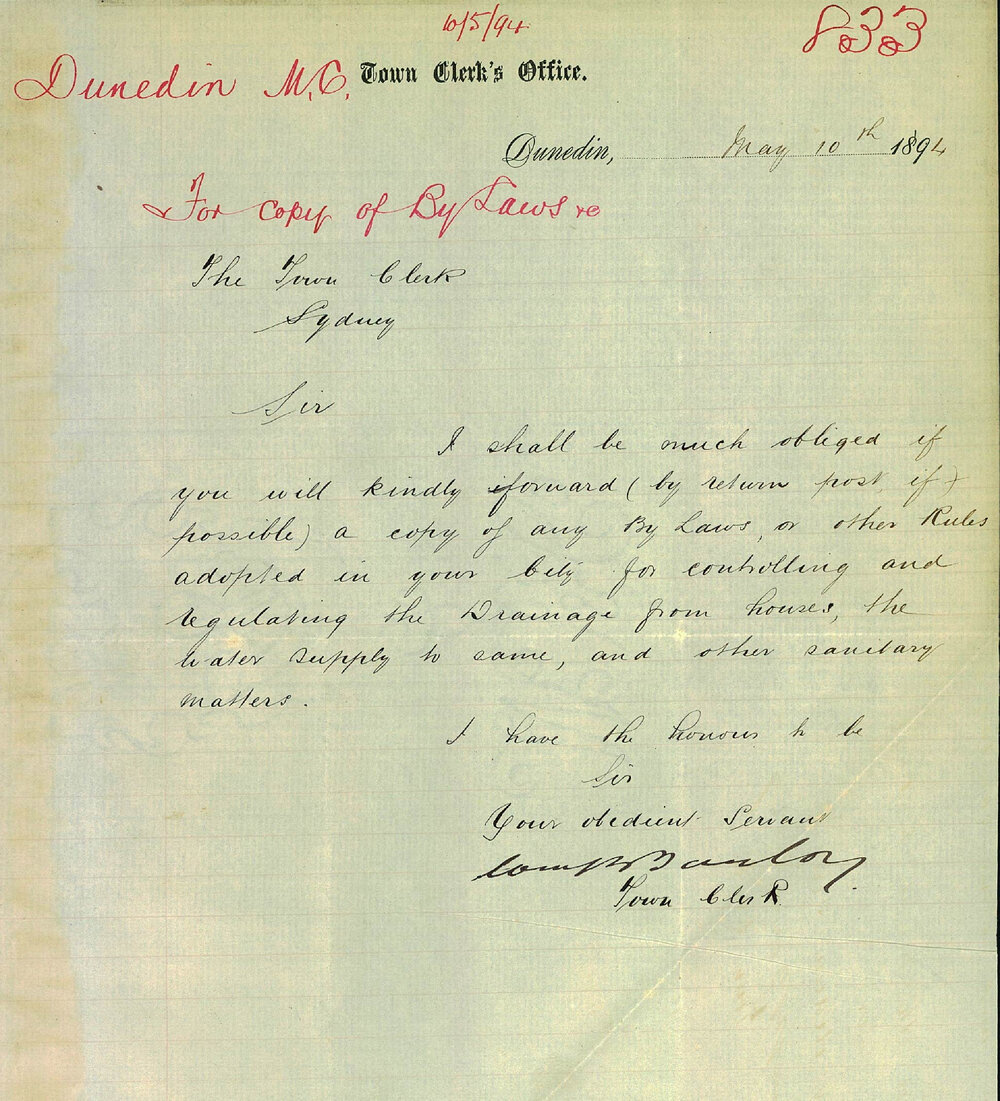 10/5/94
833
Dunedin M.C.
Town Clerk's Office.
Dunedin, May 10th 1894
For copy of By Laws &c
The Town Clerk
Sydney
Sir
I shall be much obliged if
you will kindly forward (by return post, if
possible) a copy of any By Laws, or other Rules
adopted in your City for controlling and
regulating the Drainage from houses, the
water supply to same, and other sanitary
matters.
I have the honour to be
Sir
Your obedient Servant
Town Clerk